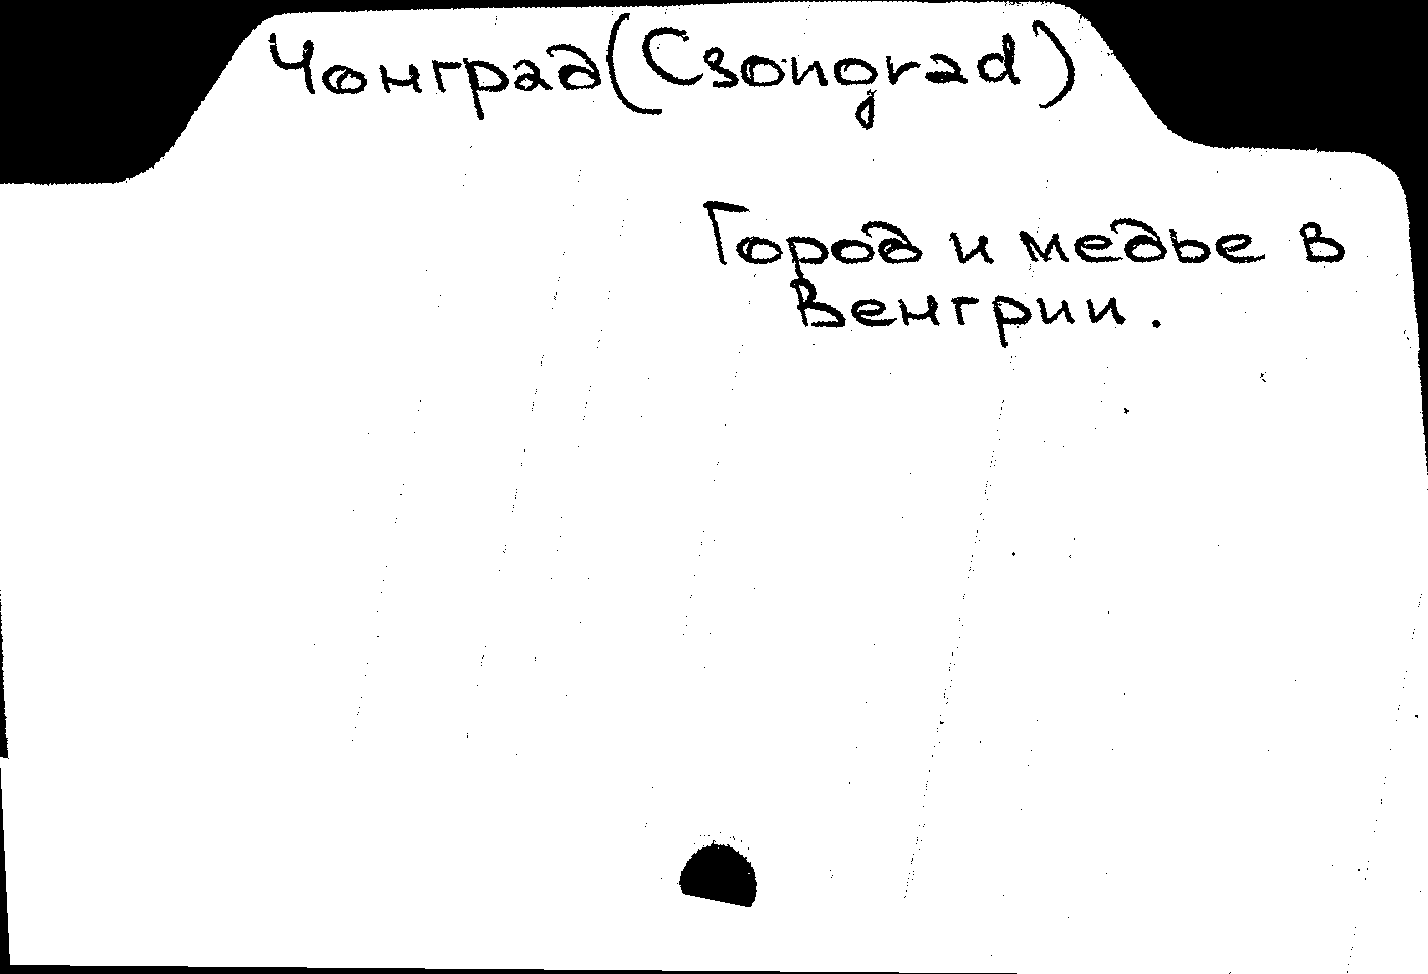 Чонград (Csongrad)
Город и медье в
Венгрии.